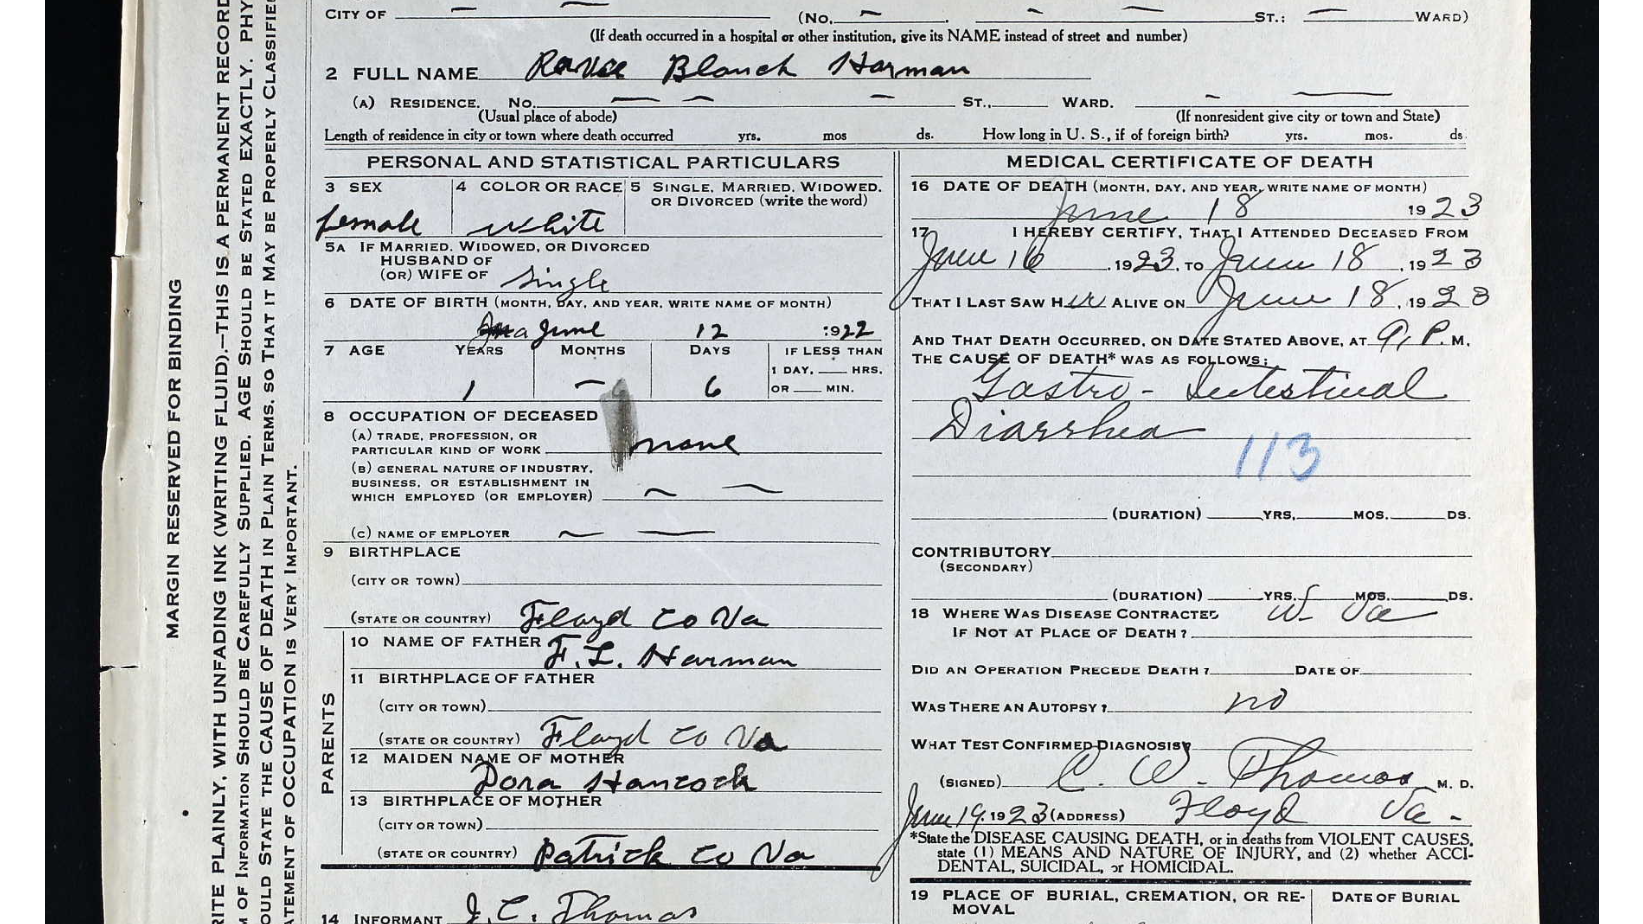 CITY OF — — (No. — . — — ST.: — WARD)
(If death occurred in a hospital or other institution, give its NAME instead of street and number)
2 FULL NAME Blanch Harman
(A) RESIDENCE. No. — — — ST., WARD. — —
(Usual place of abode) (If nonresident give city or town and State)
Length of residence in city or town where death occurred yrs. mos ds. How long in U. S., if of foreign birth? yrs. mos. ds
PERSONAL AND STATISTICAL PARTICULARS
3 SEX 4 COLOR OR RACE 5 SINGLE, MARRIED, WIDOWED,
OR DIVORCED (write the word)
female white
5A IF MARRIED, WIDOWED, OR DIVORCED
HUSBAND OF
(OR) WIFE OF single
6 DATE OF BIRTH (MONTH, DAY, AND YEAR, WRITE NAME OF MONTH)
June 12 1922
7 AGE YEARS MONTHS DAYS IF LESS THAN
1 DAY, HRS.
1 — 6 OR MIN.
8 OCCUPATION OF DECEASED
(A) TRADE, PROFESSION, OR
PARTICULAR KIND OF WORK none
(B) GENERAL NATURE OF INDUSTRY,
BUSINESS, OR ESTABLISHMENT IN
WHICH EMPLOYED (OR EMPLOYER) — —
(C) NAME OF EMPLOYER — —
9 BIRTHPLACE
(CITY OR TOWN)
(STATE OR COUNTRY) Floyd Co Va
PARENTS
10 NAME OF FATHER F. L. Harman
11 BIRTHPLACE OF FATHER
(CITY OR TOWN)
(STATE OR COUNTRY) Floyd Co Va
12 MAIDEN NAME OF MOTHER
Dora Hancock
13 BIRTHPLACE OF MOTHER
(CITY OR TOWN)
(STATE OR COUNTRY) Patrick Co Va
14 INFORMANT J. C. Thomas
MEDICAL CERTIFICATE OF DEATH
16 DATE OF DEATH (MONTH, DAY, AND YEAR, WRITE NAME OF MONTH)
June 18 1923
17 I HEREBY CERTIFY, THAT I ATTENDED DECEASED FROM
June 16, 1923, TO June 18, 1923
THAT I LAST SAW Her ALIVE ON June 18, 1923
AND THAT DEATH OCCURRED, ON DATE STATED ABOVE, AT 9, P. M.
THE CAUSE OF DEATH* WAS AS FOLLOWS:
Gastro - Intestinal
Diarrhea
113
(DURATION) YRS, MOS. DS.
CONTRIBUTORY
(SECONDARY)
(DURATION) YRS. MOS. DS.
18 WHERE WAS DISEASE CONTRACTED W. Va
IF NOT AT PLACE OF DEATH?
DID AN OPERATION PRECEDE DEATH? DATE OF
WAS THERE AN AUTOPSY? no
WHAT TEST CONFIRMED DIAGNOSIS?
(SIGNED) C. W. Thomas M. D.
June 19, 1923 (ADDRESS) Floyd Va -
*State the DISEASE CAUSING DEATH, or in deaths from VIOLENT CAUSES,
state (1) MEANS AND NATURE OF INJURY, and (2) whether ACCI-
DENTAL, SUICIDAL, or HOMICIDAL.
19 PLACE OF BURIAL, CREMATION, OR RE-
MOVAL
DATE OF BURIAL
MARGIN RESERVED FOR BINDING
RITE PLAINLY, WITH UNFADING INK (WRITING FLUID).—THIS IS A PERMANENT RECORD
OF INFORMATION SHOULD BE CAREFULLY SUPPLIED. AGE SHOULD BE STATED EXACTLY. PHY
OULD STATE THE CAUSE OF DEATH IN PLAIN TERMS, SO THAT IT MAY BE PROPERLY CLASSIFIE
ATEMENT OF OCCUPATION IS VERY IMPORTANT.